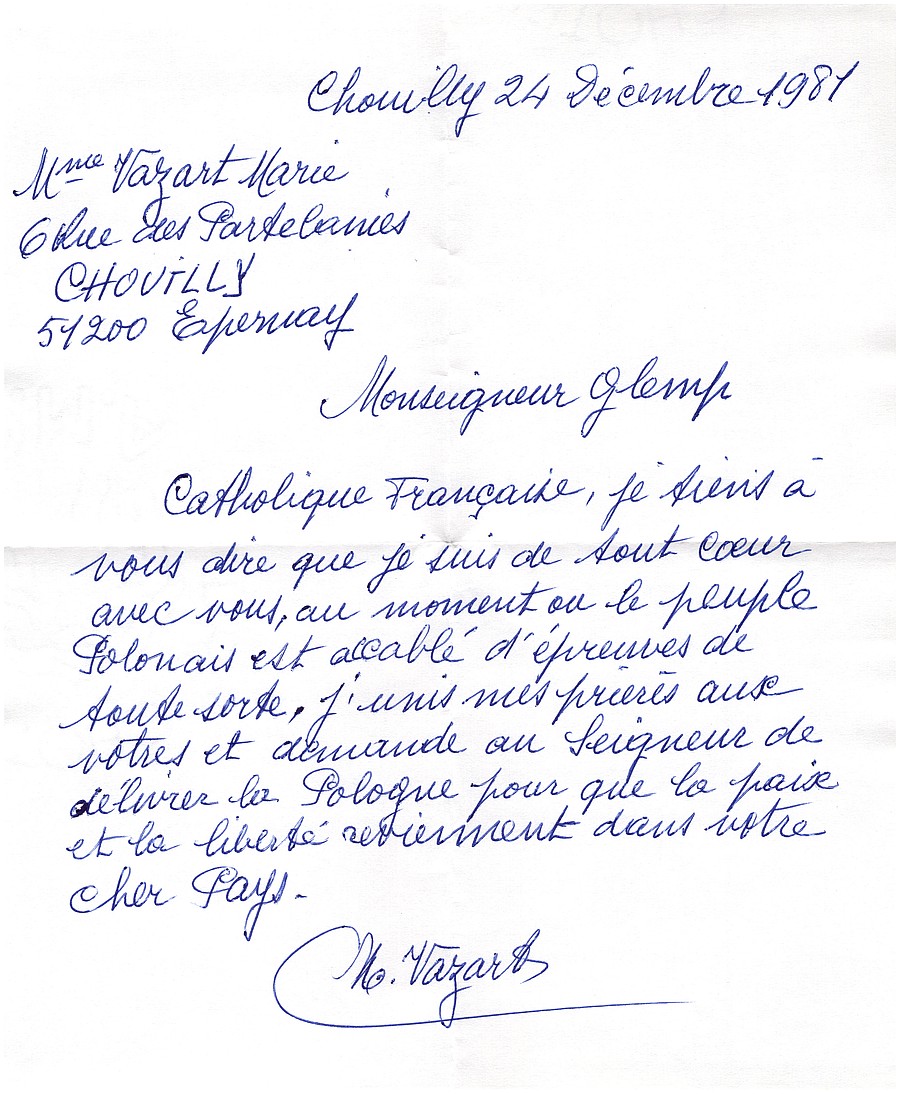 Chouilly 24 Décembre 1981
Mme Vazart Marie
6 Rue des Partelaines
CHOUILLY
51200 Epernay
Monseigneur Glemp
Catholique Française, je tiens à
vous dire que je suis de tout cœur
avec vous, au moment ou le peuple
Polonais est accablé d'épreuves de
toute sorte, j'unis mes prières aux
vôtres et demande au Seigneur de
délivrer la Pologne pour que la paix
et la liberté reviennent dans votre
cher Pays.
M. Vazart